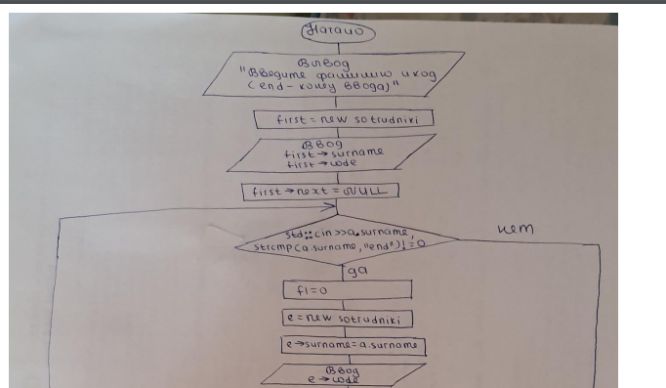 Начало
Вывод
"Введите фамилию и код
(end - конец ввода)"
first = new sotrudniki
Ввод
first → surname
first → code
first → next = NULL
std::cin>>a.surname,
strcmp(a.surname,"end")!=0
нет
да
fl=0
e = new sotrudniki
e → surname = a.surname
Ввод
e → code